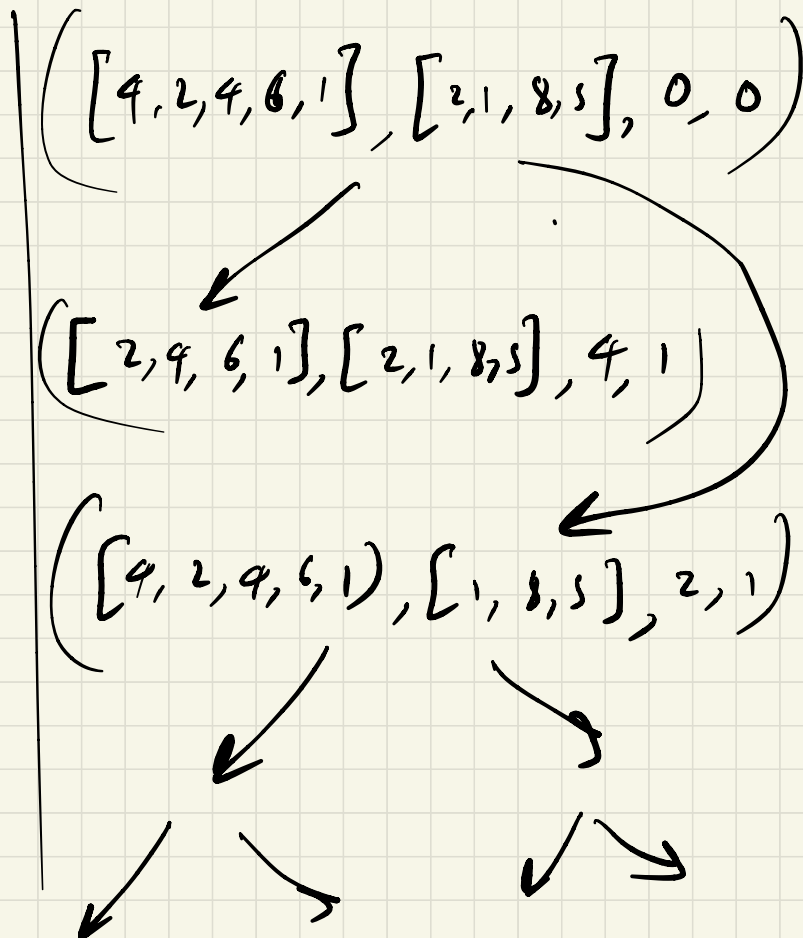 ([4, 2, 4, 6, 1], [2, 1, 8, 5], 0, 0)
([2, 4, 6, 1], [2, 1, 8, 5], 4, 1)
([4, 2, 4, 6, 1), [1, 8, 5], 2, 1)